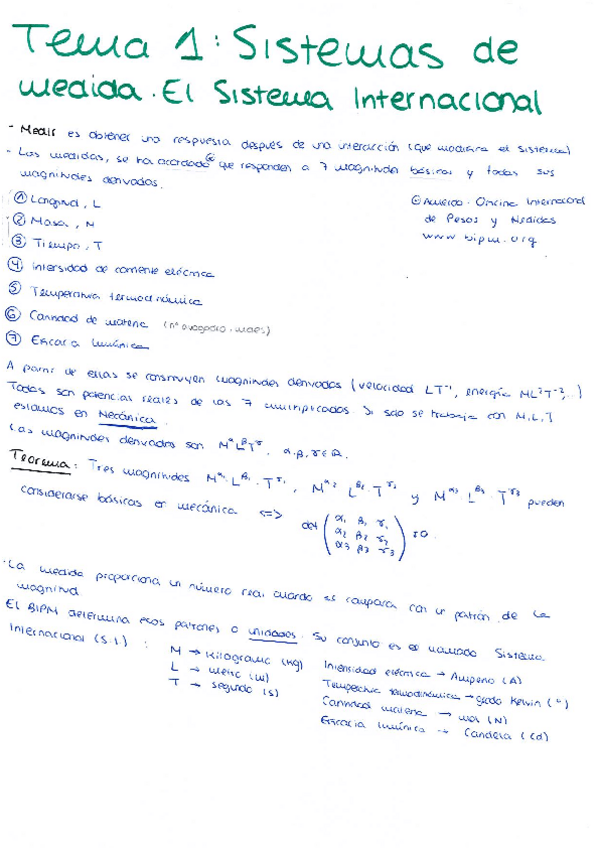 Tema 1: Sistemas de
medida. El Sistema Internacional
- Medir es obtener una respuesta después de una interacción (que modifica el sistema)
- Las medidas, se ha acordado ⓐ que responden a 7 magnitudes básicas y todas sus
magnitudes derivadas.
① Longitud, L
② Masa, M
③ Tiempo, T
④ Intensidad de corriente eléctrica
⑤ Temperatura termodinámica
⑥ Cantidad de materia (nº avogadro, moles)
⑦ Eficacia lumínica
Acuerdo. Oficina Internacional
de Pesos y Medidas
www.bipm.org
A partir de ellas se construyen magnitudes derivadas (velocidad LT⁻¹, energía ML²T⁻²,...)
Todas son potencias reales de las 7 multiplicadas. Si solo se trabaja con M, L, T
estamos en Mecánica.
Las magnitudes derivadas son M^α L^β T^γ, α, β, γ ∈ R.
Teorema: Tres magnitudes M^α₁ · L^β₁ · T^γ₁, M^α₂ L^β₂ · T^γ₂ y M^α₃ L^β₃ · T^γ₃ pueden
considerarse básicas en mecánica <=> det (α₁ β₁ γ₁
α₂ β₂ γ₂
α₃ β₃ γ₃) ≠ 0.
· La medida proporciona un número real cuando se compara con un patrón de la
magnitud.
El BIPM determina esos patrones o unidades. Su conjunto es el llamado Sistema
Internacional (S.I.) :
M → Kilogramo (kg)
L → metro (m)
T → segundo (s)
Intensidad eléctrica → Amperio (A)
Temperatura termodinámica → grado Kelvin (º)
Cantidad materia → mol (N)
Eficacia lumínica → Candela (cd)